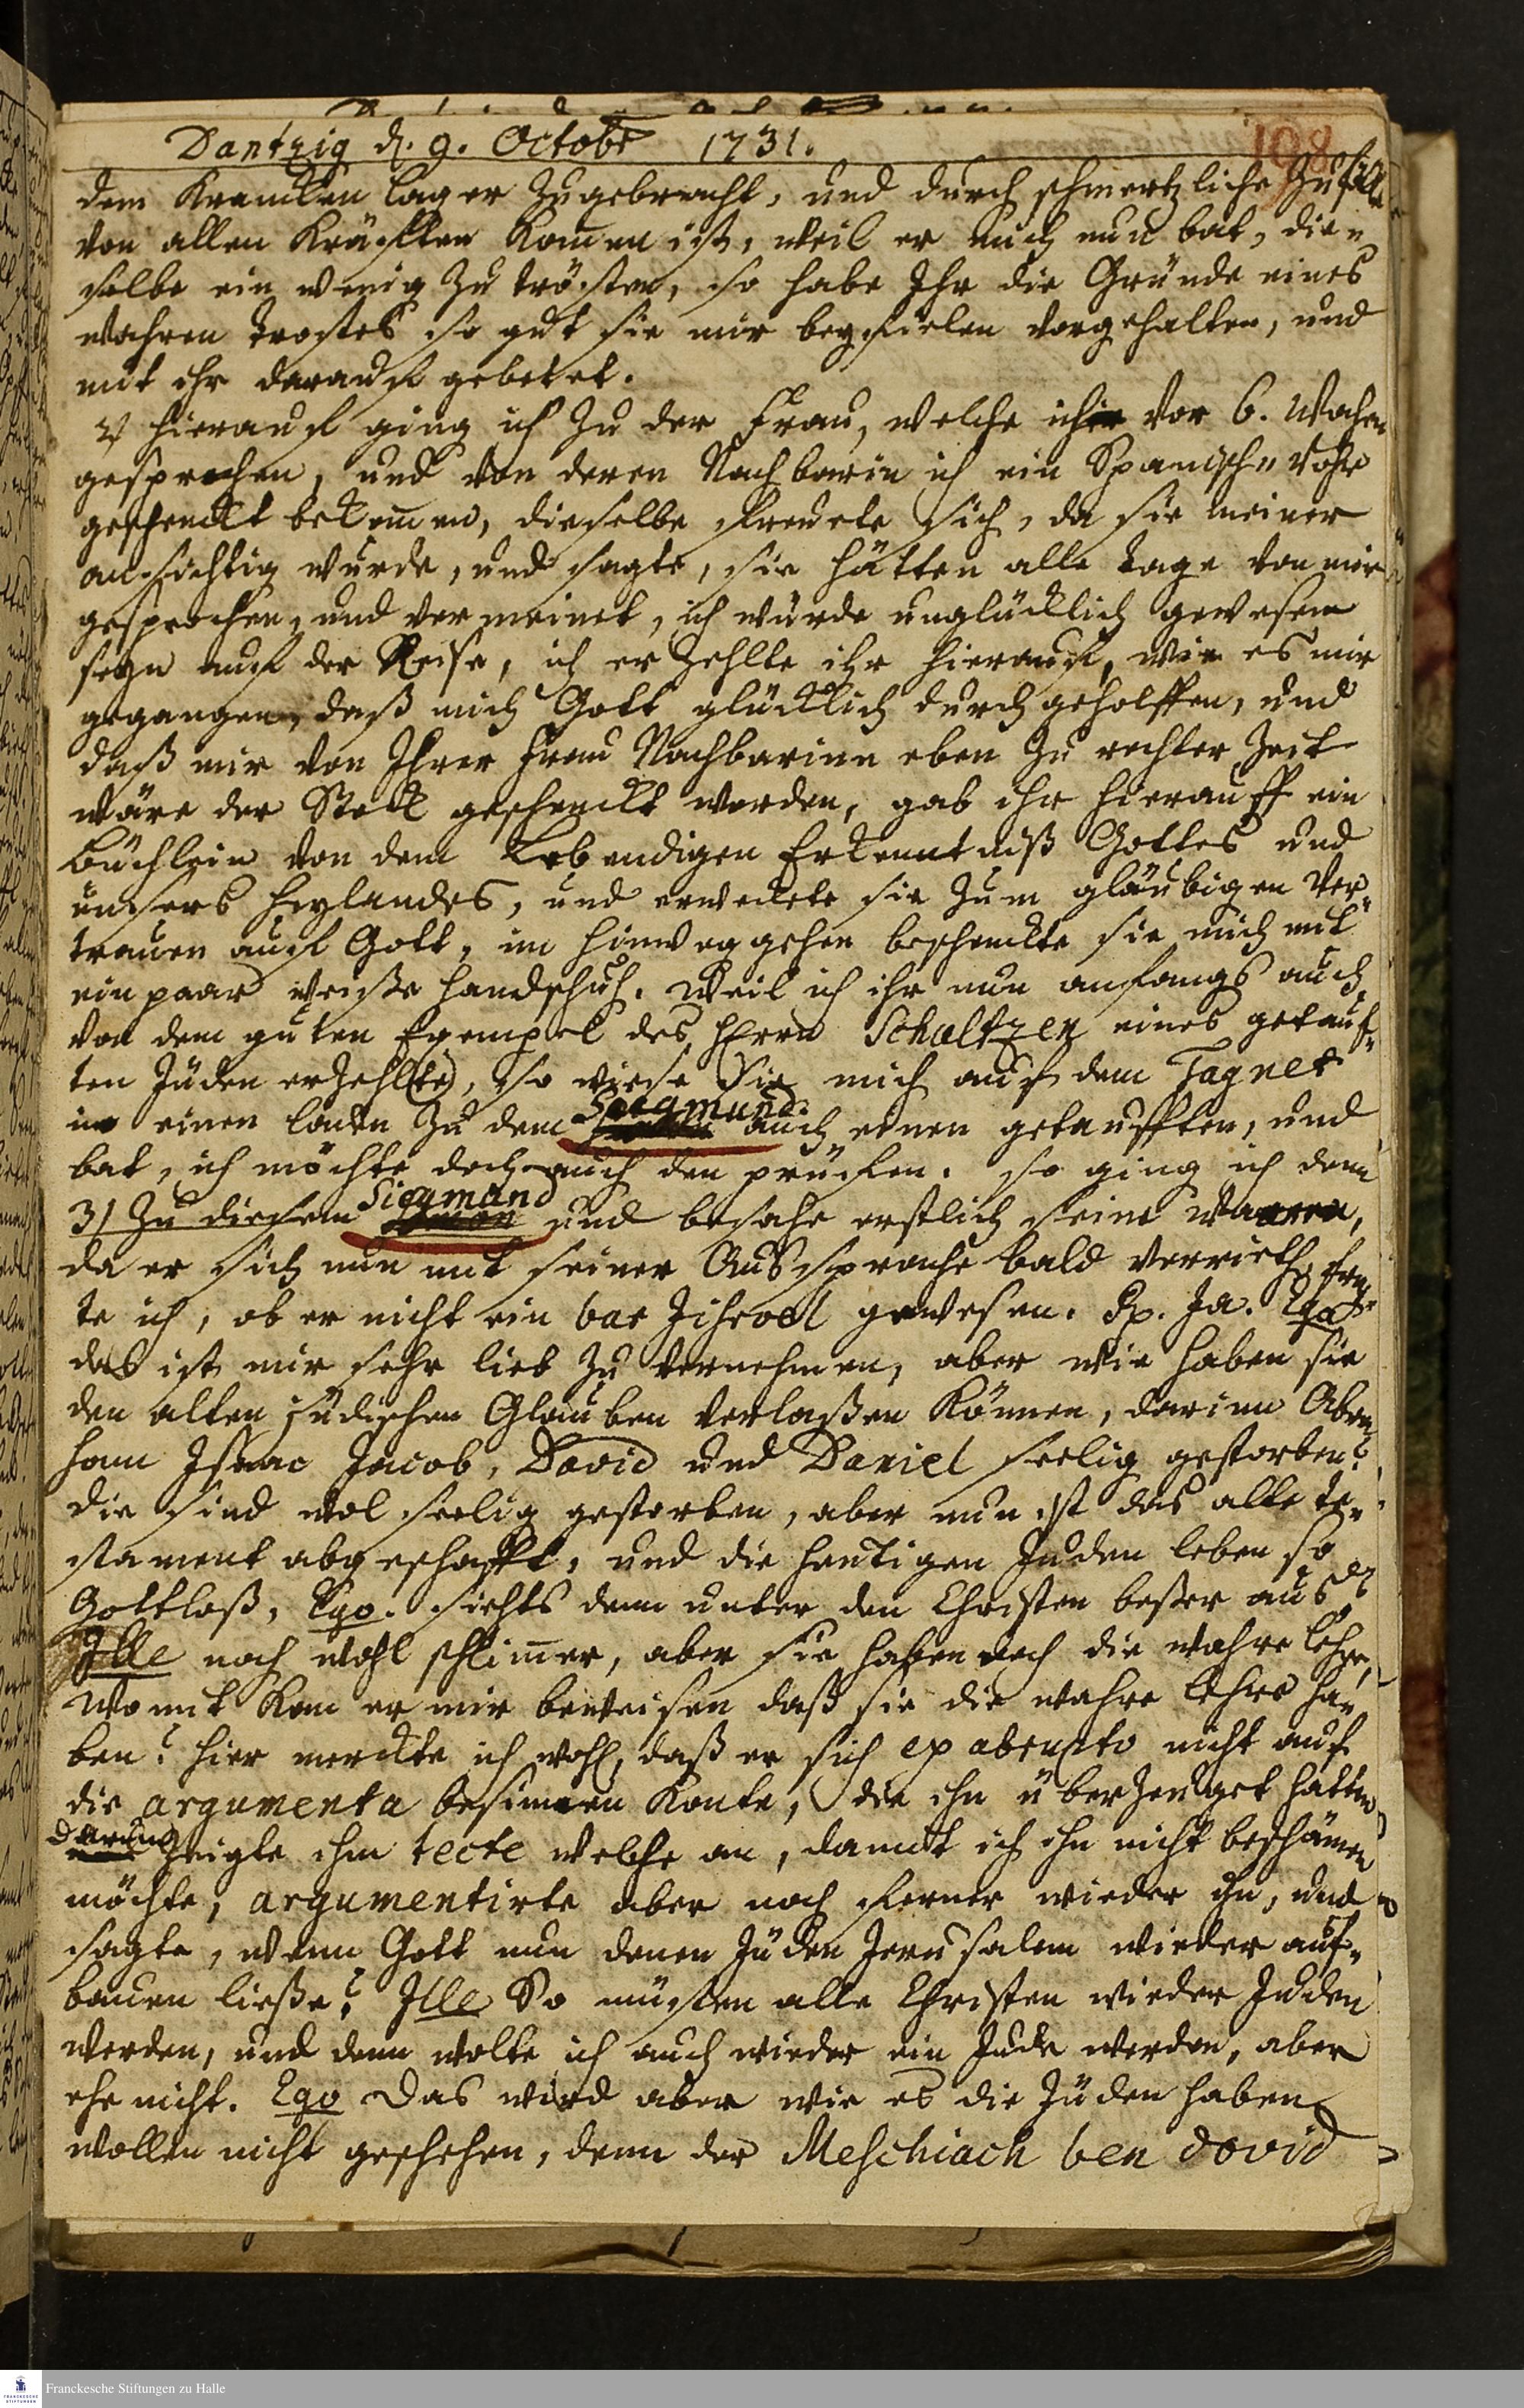 Dantzig d. 9. Octobr 1731.
198
dem Krancken lager zugebracht, und durch schmertzliche Zufälle
von allen Kräfften kommen ist, weil er mich nun bat, die-
selbe ein wenig zu trösten, so habe Ihr die Gründe eines
wahren trostes so gut sie mir beyfielen vorgehalten, und
mit ihr darauf gebetet.
2/ hierauf ging ich zu der Frau, welche ich vor 6. Wochen
gesprochen, und von deren Nachbarin ich ein Spanisch-rohr
geschenckt bekommen, dieselbe freuete sich, da sie meiner
ansichtig wurde, und sagte, sie hätten alle tage von mir
gesprochen, und vermeinet, ich würde unglücklich gewesen
seyn auf der Reise, ich erzehlte ihr hierauf, wie es mir
gegangen, daß mich Gott glücklich durchgeholffen, und
daß mir von Ihrer Frau Nachbarinn eben zu rechter Zeit
wäre der Stock geschenckt worden, gab ihr hierauff ein
büchlein von dem Lebendigen Erkenntniß Gottes und
unsers Heylandes, und erweckte sie zum gläubigen Ver-
trauen auf Gott, im hinweggehen beschenckte sie mich mit
ein paar weiße handschuh. Weil ich ihr nun anfangs auch
von dem guten Exempel des Herrn Schultzen eines getauf-
ten Juden erzehlte, so wiese Sie mich auf dem Tagnet
in einen laden zu dem Siegmund auch einen getaufften, und
bat, ich möchte doch auch den prüfen. so ging ich denn
3/ Zu diesem Sigmund und besahe erstlich seine waaren,
da er sich nun mit seiner Aussprache bald verrieth, frag-
te ich, ob er nicht ein bar Jisroel gewesen. Rx. Ja. Ego
das ist mir sehr lieb zu vernehmen, aber wie haben sie
den alten jüdischen Glauben verlaßen können, darinn Abra-
ham Isaac Jacob, David und Daniel seelig gestorben?
die sind wol seelig gestorben, aber nun ist das alte te-
stament abgeschafft, und die heutigen Juden leben so
Gottloß, Ego. siehts denn unter den Christen beßer aus?
Ille noch wohl schlimmer, aber sie haben doch die wahre lehre,
womit kan er mir beweisen daß sie die wahre lehre ha-
ben? hier merckte ich wohl, daß er sich ex abrupto nicht auf
die argumenta besinnen konte, die ihn überzeuget hatten
darum zeigte ihm tecte welche an, damit ich ihn nicht beschämen
möchte, argumentirte aber noch ferner wieder ihn, und
sagte, wenn Gott nun denen Juden Jerusalem wieder auf-
bauen ließe? Ille So müsten alle Christen wieder Juden
werden, und denn wolte ich auch wieder ein Jude werden, aber
ehe nicht. Ego Das wird aber wie es die Juden haben
wollen nicht geschehen, denn der Meschiach ben dovid
Franckesche Stiftungen zu Halle